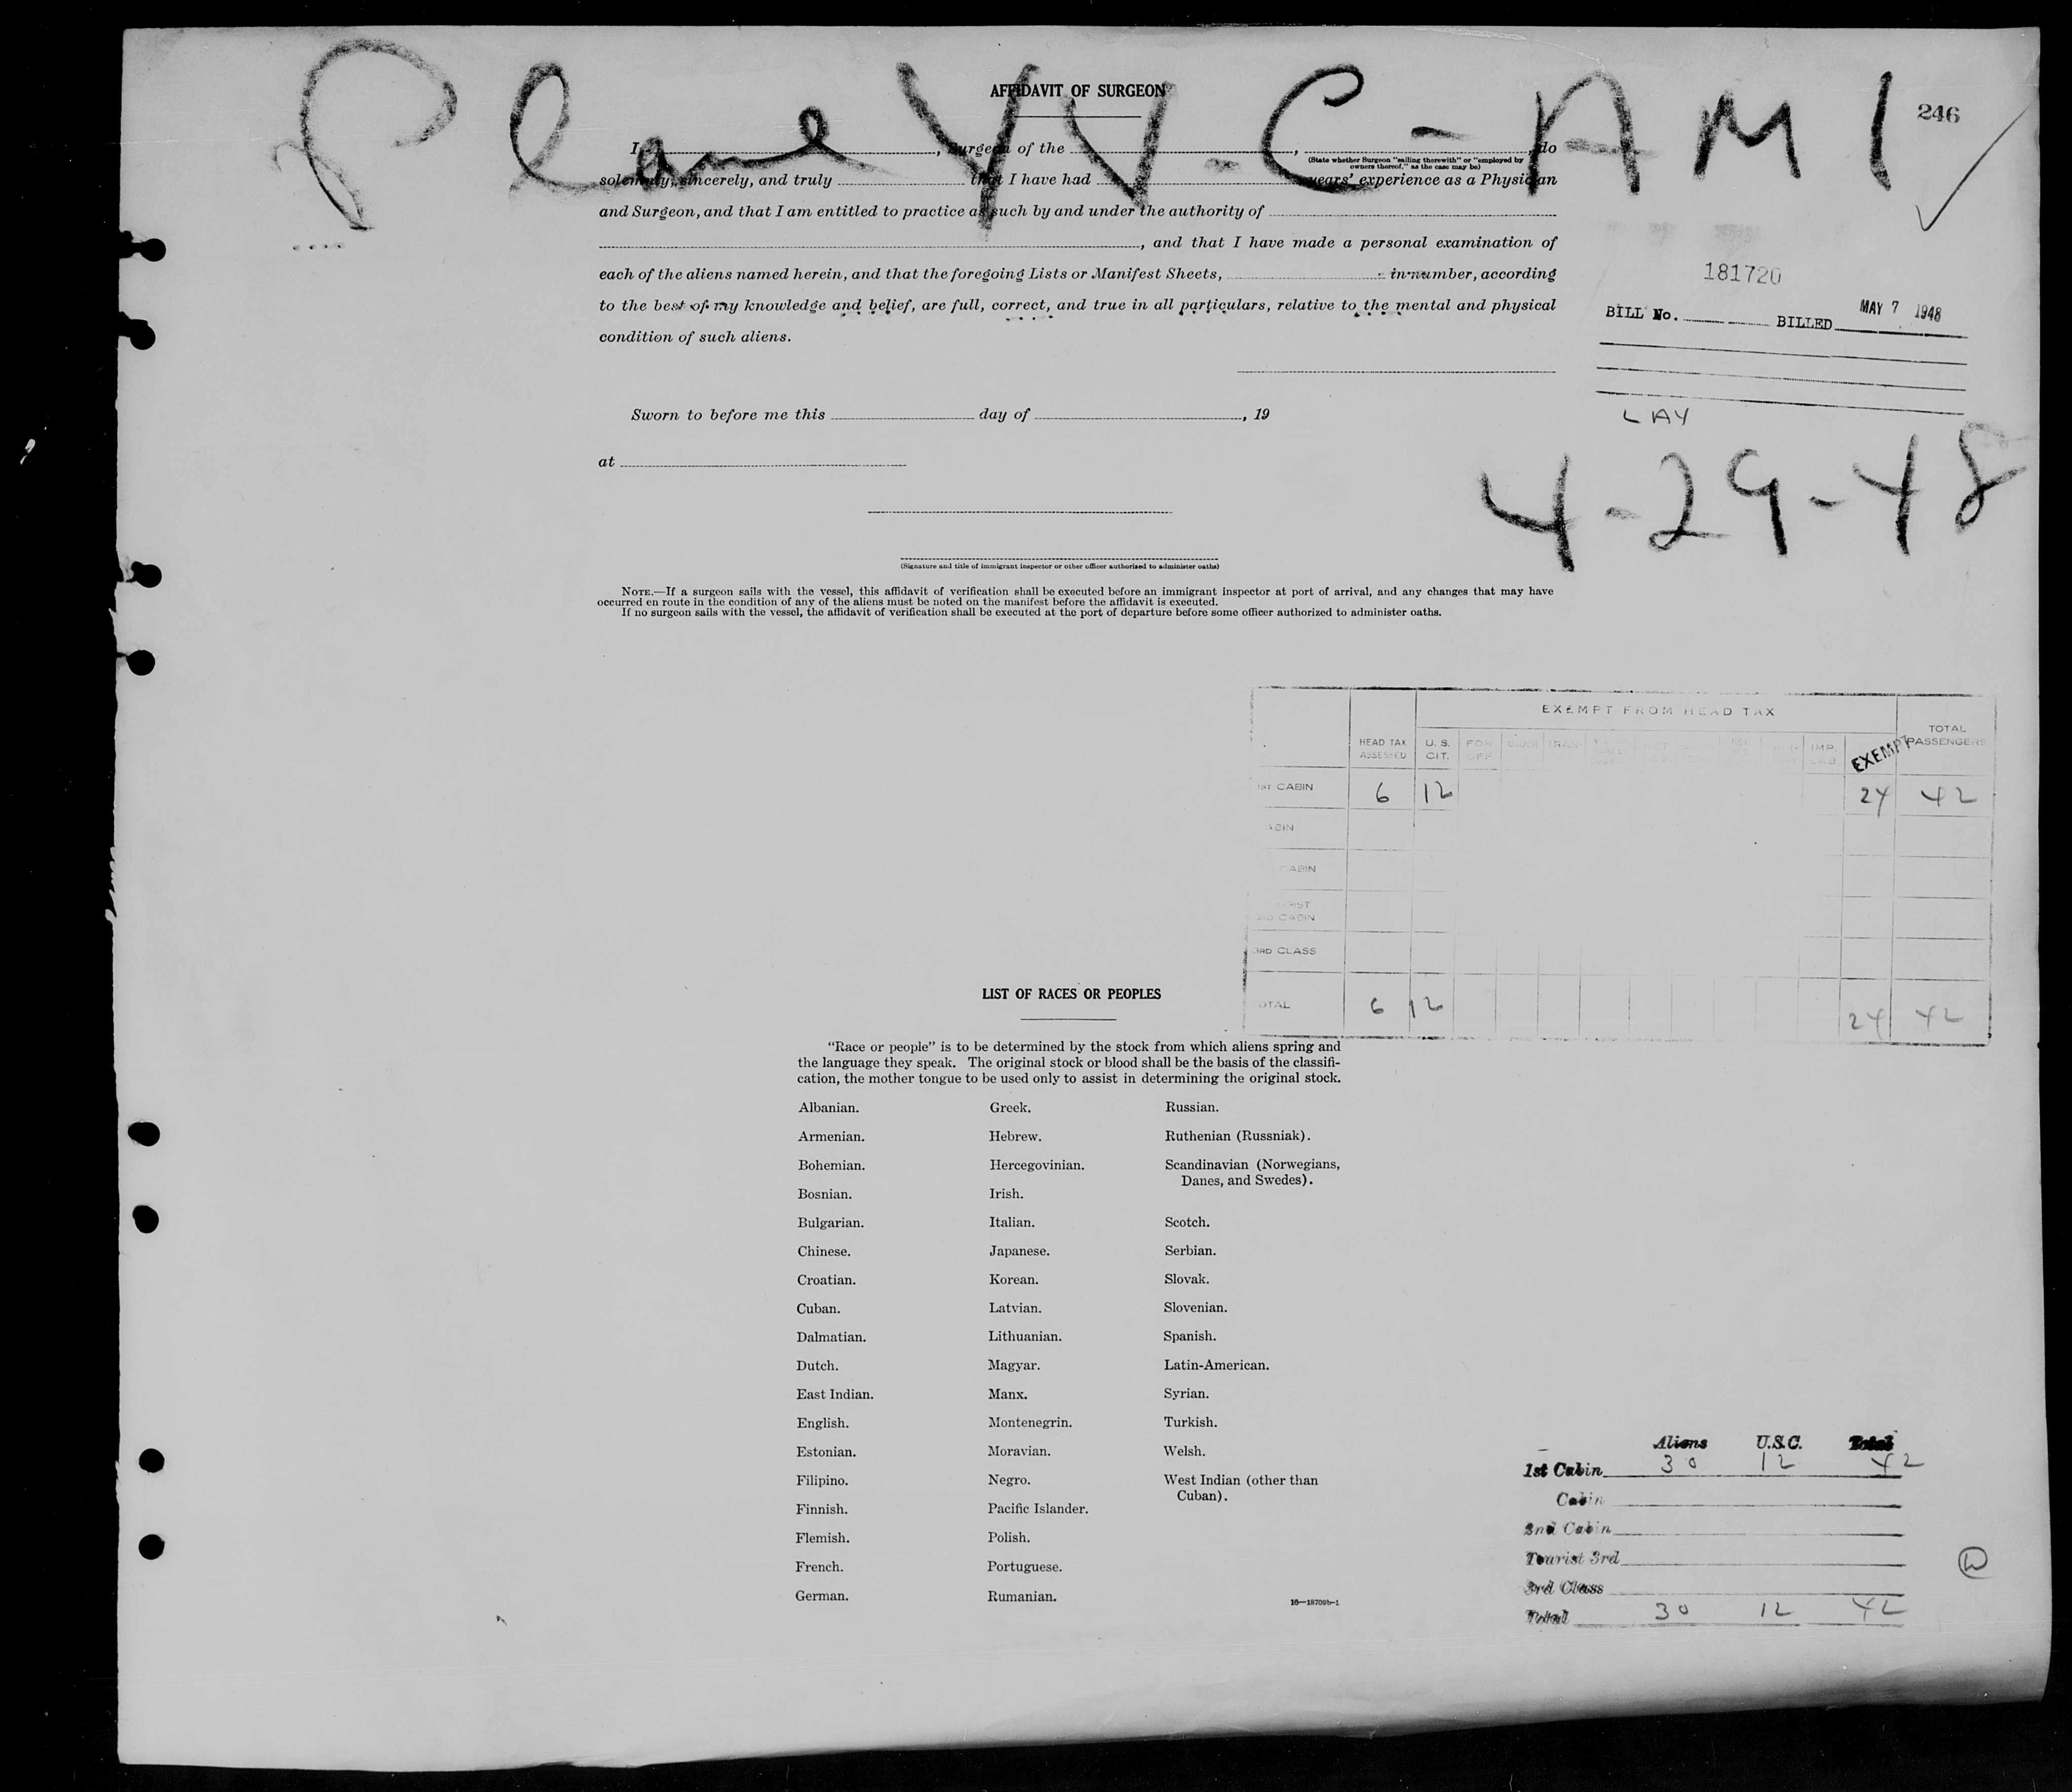 Plane YV-C-AMI
246
AFFIDAVIT OF SURGEON
I, , Surgeon of the , , do
(State whether Surgeon "sailing therewith" or "employed by owners thereof," as the case may be)
solemnly, sincerely, and truly that I have had years' experience as a Physician
and Surgeon, and that I am entitled to practice as such by and under the authority of
, and that I have made a personal examination of
each of the aliens named herein, and that the foregoing Lists or Manifest Sheets, in number, according
to the best of my knowledge and belief, are full, correct, and true in all particulars, relative to the mental and physical
condition of such aliens.
181720
BILL No. BILLED MAY 7 1948
LAY
4-29-48
Sworn to before me this day of , 19
at
(Signature and title of immigrant inspector or other officer authorized to administer oaths)
NOTE.—If a surgeon sails with the vessel, this affidavit of verification shall be executed before an immigrant inspector at port of arrival, and any changes that may have
occurred en route in the condition of any of the aliens must be noted on the manifest before the affidavit is executed.
If no surgeon sails with the vessel, the affidavit of verification shall be executed at the port of departure before some officer authorized to administer oaths.
EXEMPT FROM HEAD TAX
HEAD TAX ASSESSED U. S. CIT. FOR OFF. UNDER TRAN- IMP. EXEMPT TOTAL PASSENGERS
1ST CABIN 6 12 24 42
CABIN
CABIN
3RD CABIN
3RD CLASS
TOTAL 6 12 24 42
LIST OF RACES OR PEOPLES
"Race or people" is to be determined by the stock from which aliens spring and
the language they speak. The original stock or blood shall be the basis of the classifi-
cation, the mother tongue to be used only to assist in determining the original stock.
Albanian. Greek. Russian.
Armenian. Hebrew. Ruthenian (Russniak).
Bohemian. Hercegovinian. Scandinavian (Norwegians,
Danes, and Swedes).
Bosnian. Irish.
Bulgarian. Italian. Scotch.
Chinese. Japanese. Serbian.
Croatian. Korean. Slovak.
Cuban. Latvian. Slovenian.
Dalmatian. Lithuanian. Spanish.
Dutch. Magyar. Latin-American.
East Indian. Manx. Syrian.
English. Montenegrin. Turkish.
Estonian. Moravian. Welsh.
Filipino. Negro. West Indian (other than
Cuban).
Finnish. Pacific Islander.
Flemish. Polish.
French. Portuguese.
German. Rumanian.
16—18709b-1
Aliens U.S.C. Total
1st Cabin 30 12 42
Cabin
2nd Cabin
Tourist 3rd
3rd Class
Total 30 12 42